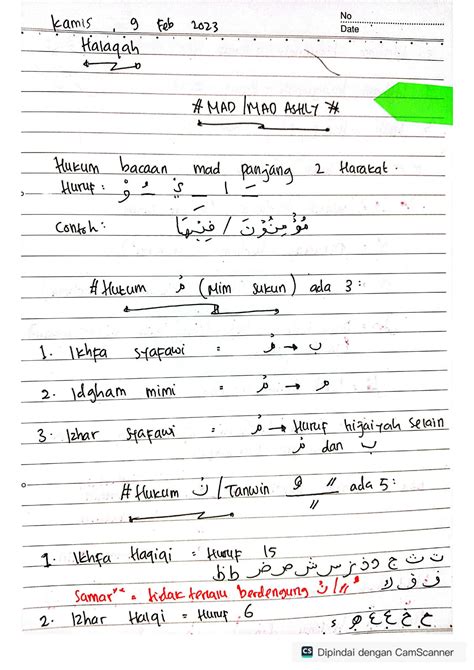 No
Date
Kamis, 9 Feb 2023
Halaqah
# MAD / MAD ASHLY #
Hukum bacaan mad panjang 2 Harakat.
Huruf : ـَ ا ـِ يْ ـُ وْ
Contoh : مُؤْمِنُوْنَ / فِيْهَا
# Hukum مْ (Mim sukun) ada 3 :
1. Ikhfa syafawi = مْ → ب
2. Idgham mimi = مْ → م
3. Izhar syafawi = مْ → Huruf hijaiyah selain
مْ dan ب
# Hukum نْ / Tanwin ada 5 :
1. Ikhfa Haqiqi = Huruf 15
ت ث ج د ذ ز س ش ص ض
ط ظ ف ق ك
Samar" = tidak terlalu berdengung
2. Izhar Halqi = Huruf 6
ح خ ع غ ه ء
CS Dipindai dengan CamScanner